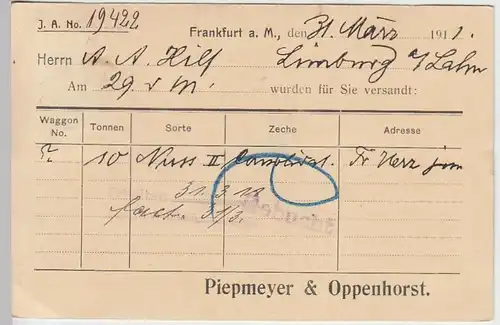 J. A. No. 19422
Frankfurt a. M., den 31. März 1911.
Herrn A. A. Hilf Limburg a/Lahn
Am 29. v. M. wurden für Sie versandt:
Waggon No. Tonnen Sorte Zeche Adresse
10 Nuss II Fr Herz jun
31.3.11
fact. 31/3.
Gebucht
Piepmeyer & Oppenhorst.